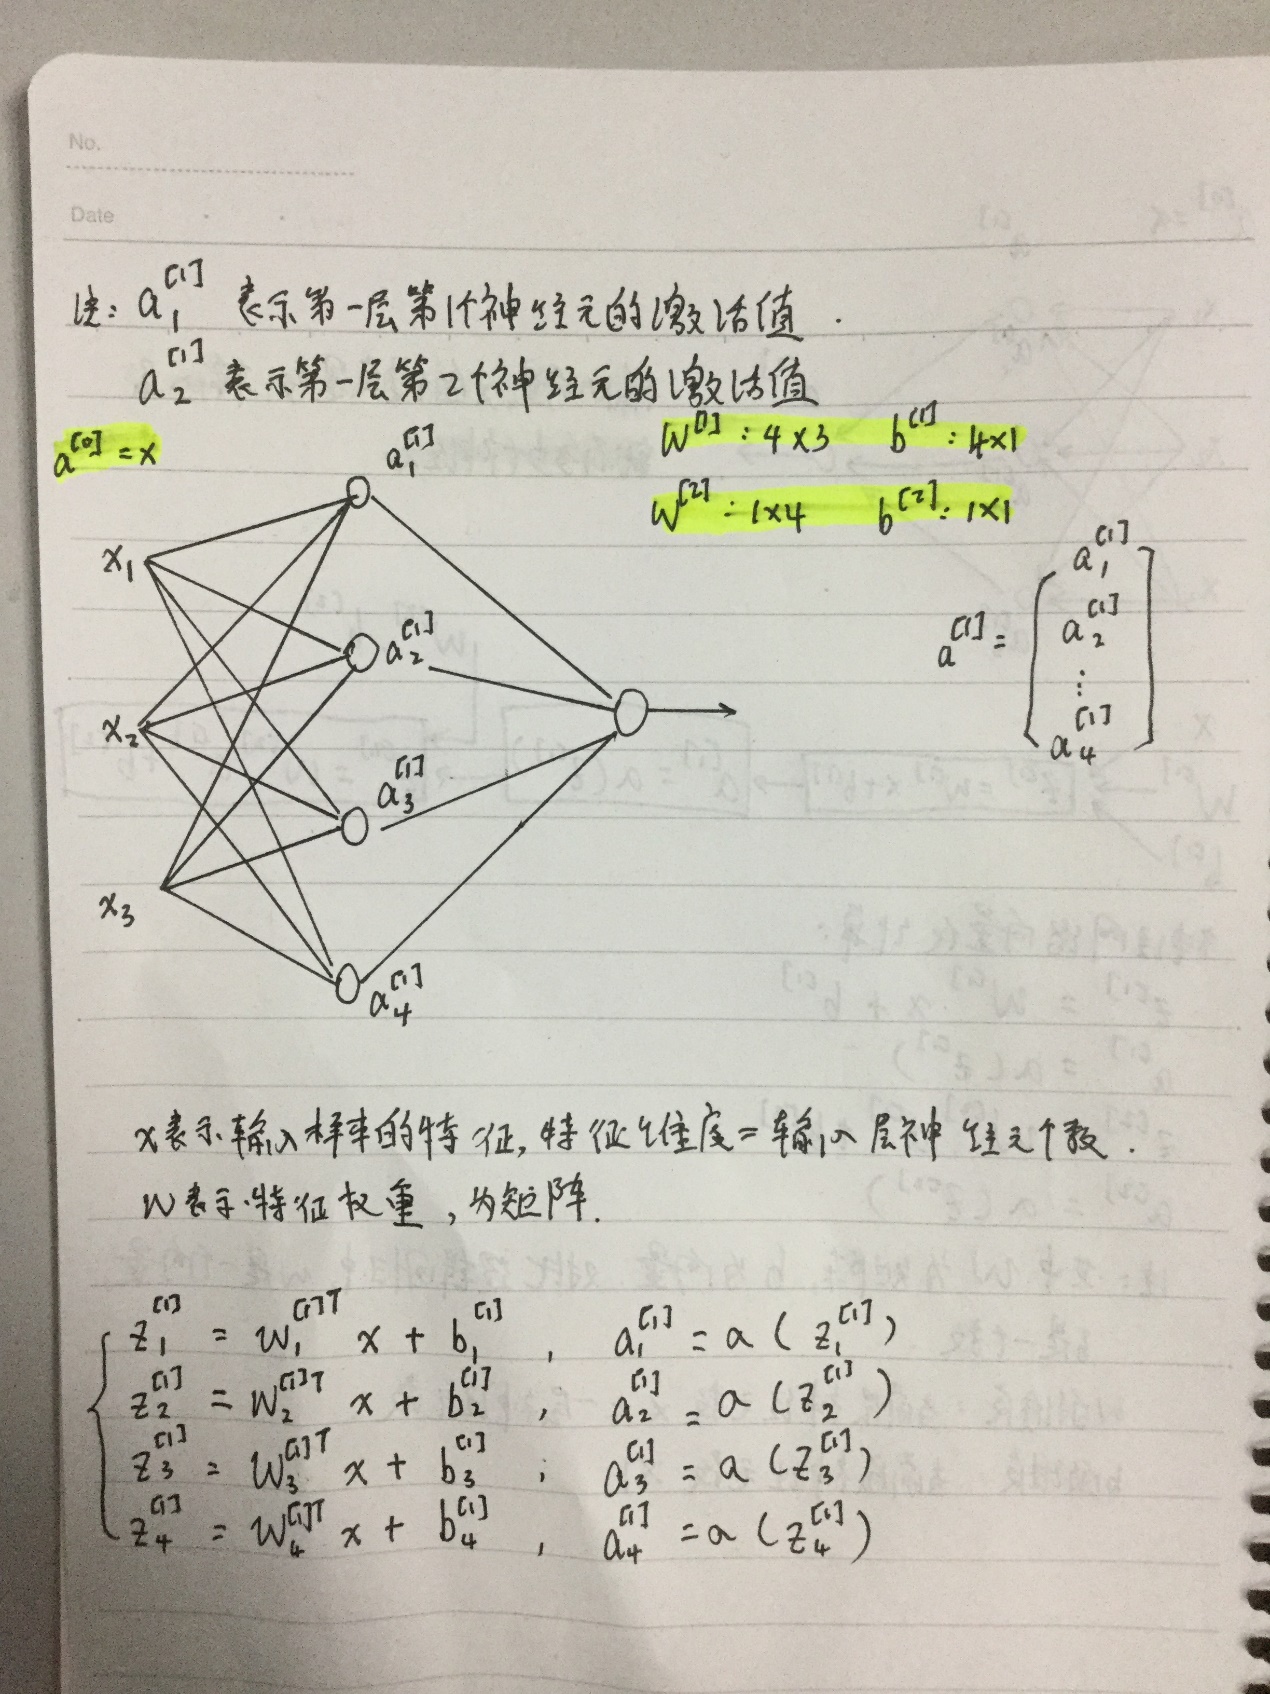 No.
Date
注: a₁^[1] 表示第一层第1个神经元的激活值.
a₂^[1] 表示第一层第2个神经元的激活值
a^[0] = x
W^[1] : 4×3 b^[1] : 4×1
W^[2] : 1×4 b^[2] : 1×1
a₁^[1]
x₁
a₂^[1]
x₂
a₃^[1]
x₃
a₄^[1]
a^[1] = [ a₁^[1]
a₂^[1]
⋮
a₄^[1] ]
x表示输入样本的特征, 特征维度=输入层神经元个数.
W表示特征权重, 为矩阵.
z₁^[1] = W₁^[1]T x + b₁^[1] , a₁^[1] = a(z₁^[1])
z₂^[1] = W₂^[1]T x + b₂^[1] , a₂^[1] = a(z₂^[1])
z₃^[1] = W₃^[1]T x + b₃^[1] , a₃^[1] = a(z₃^[1])
z₄^[1] = W₄^[1]T x + b₄^[1] , a₄^[1] = a(z₄^[1])